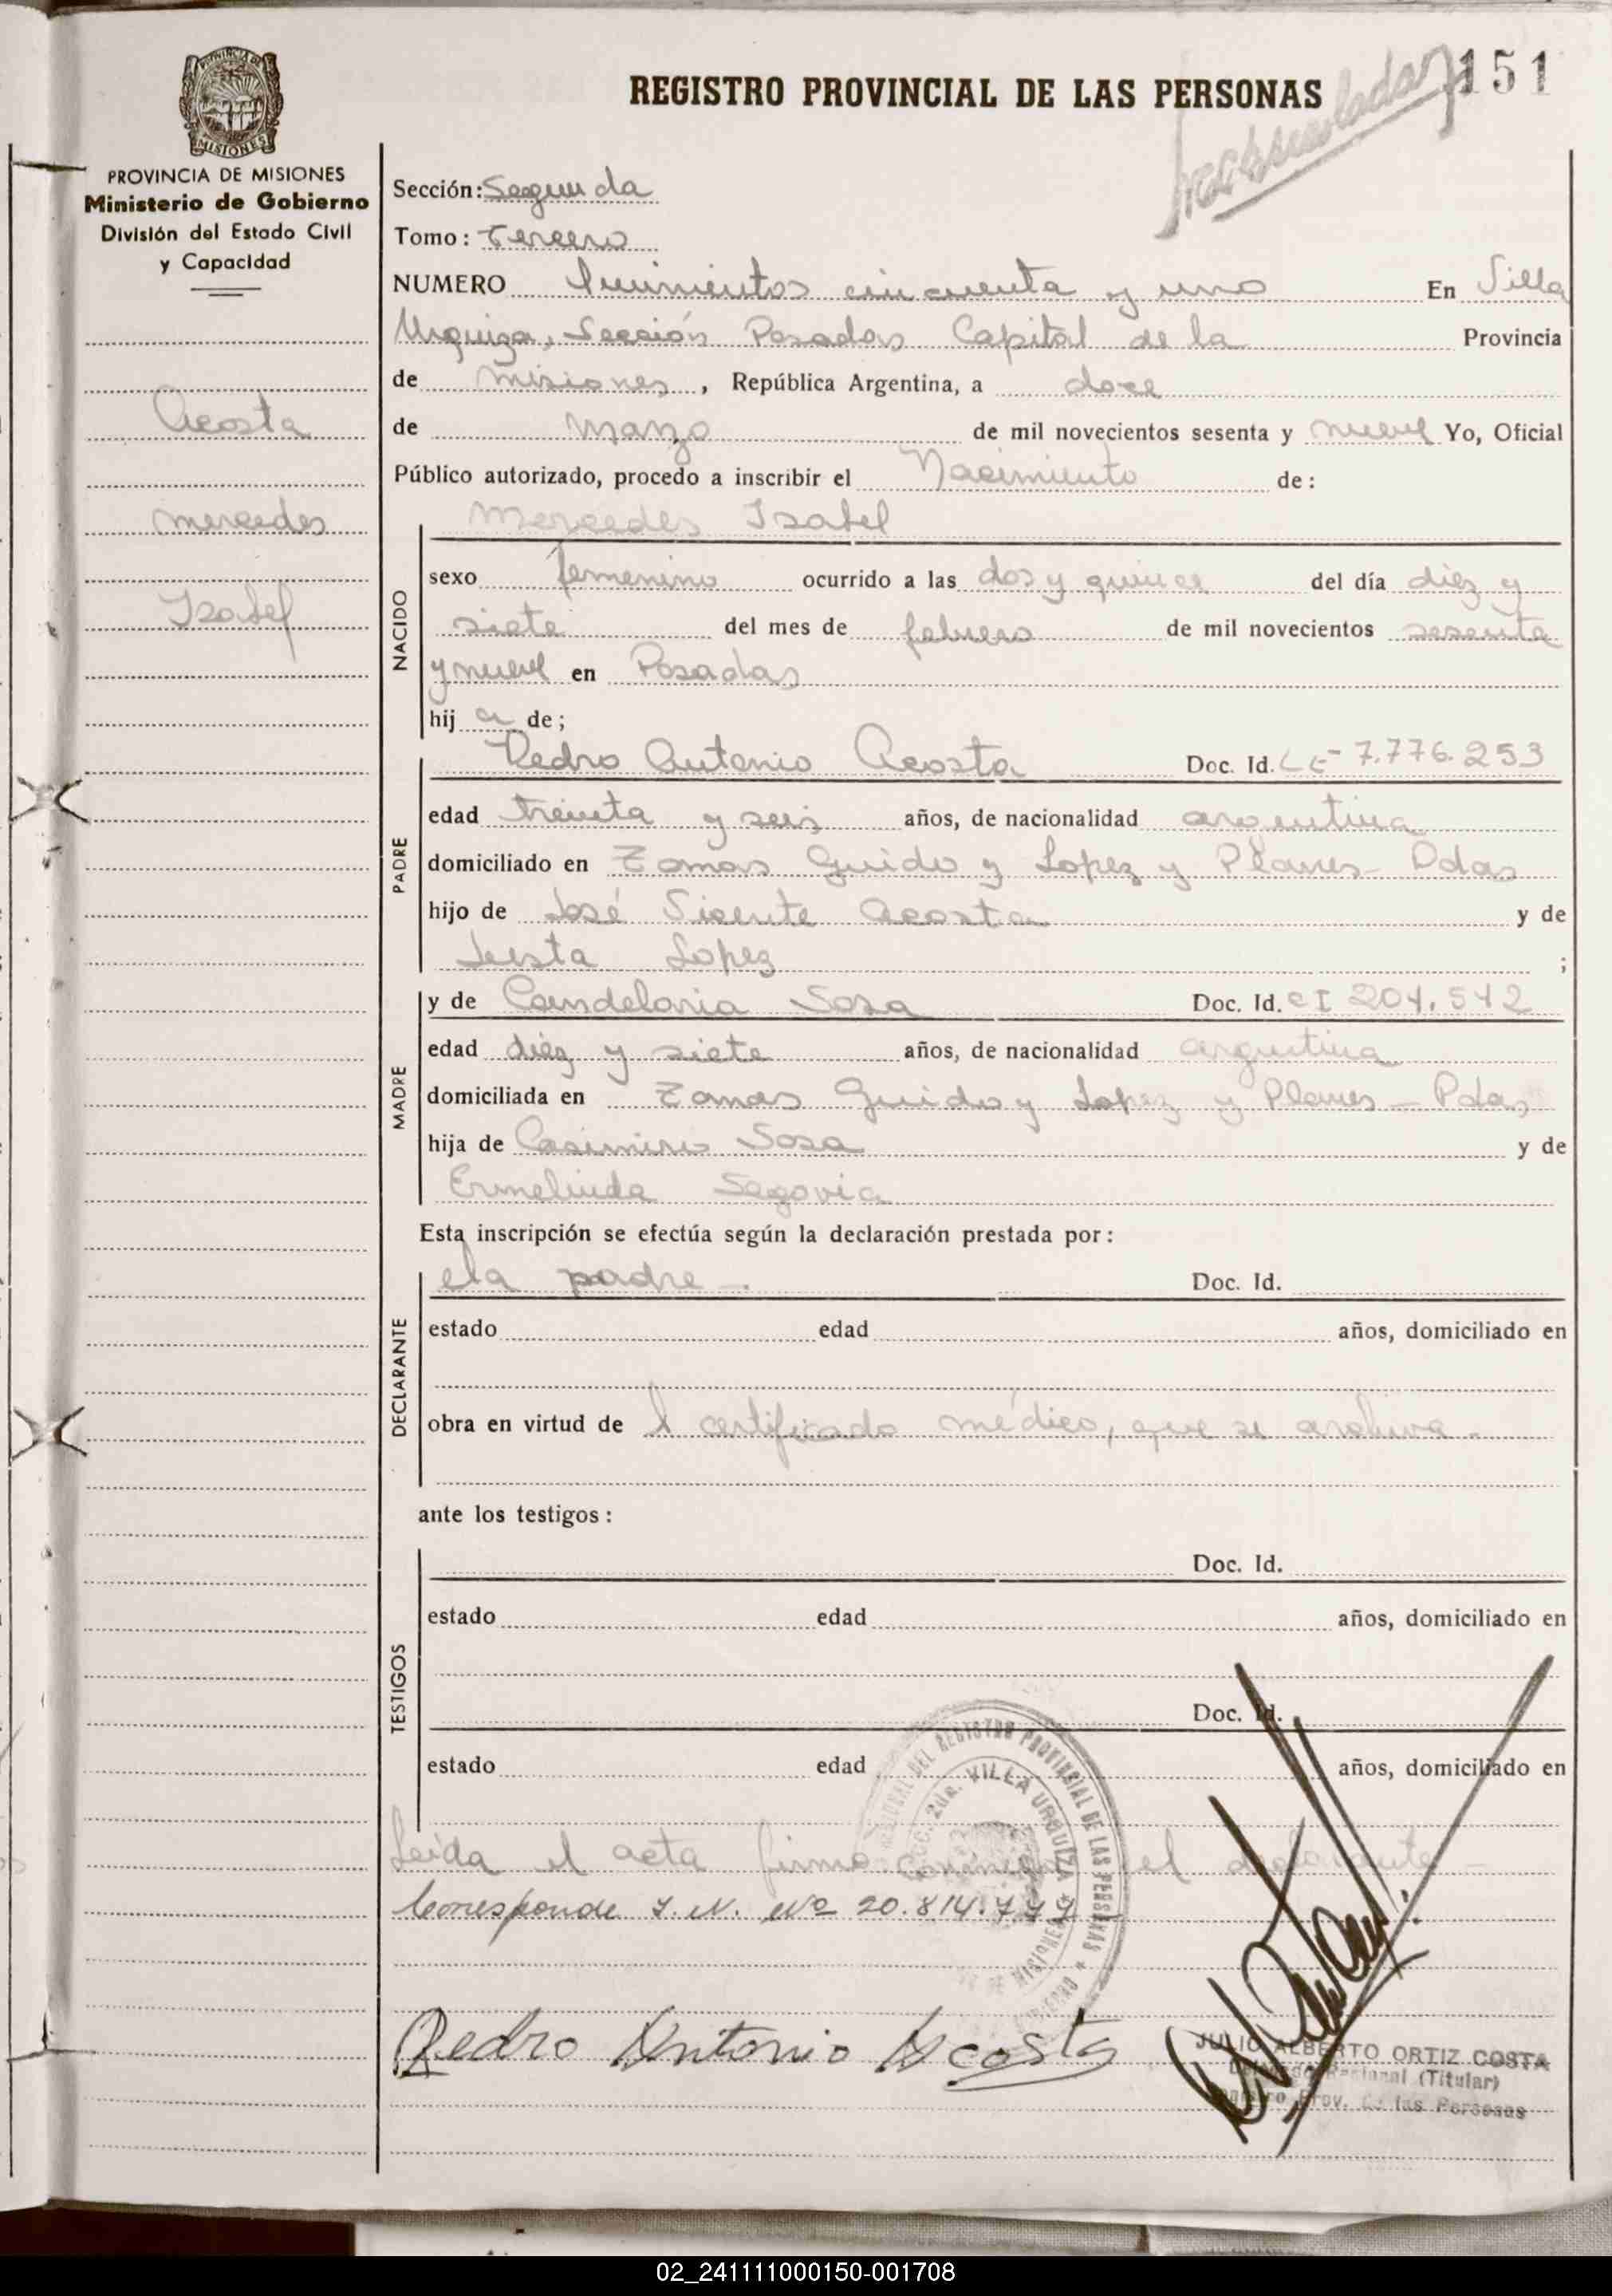 151
REGISTRO PROVINCIAL DE LAS PERSONAS
PROVINCIA DE MISIONES
Ministerio de Gobierno
División del Estado Civil
y Capacidad
Acosta
mercedes
Isabel
Sección: Segunda
Tomo: Tercero
NUMERO Quinientos cincuenta y uno En Villa
Urquiza, Sección Posadas Capital de la Provincia
de misiones, República Argentina, a doce
de marzo de mil novecientos sesenta y nueve Yo, Oficial
Público autorizado, procedo a inscribir el Nacimiento de:
NACIDO
Mercedes Isabel
sexo femenino ocurrido a las dos y quince del día diez y
siete del mes de febrero de mil novecientos sesenta
y nueve en Posadas
hija de;
PADRE
Pedro Antonio Acosta Doc. Id. LE- 7.776.253
edad treinta y seis años, de nacionalidad argentina
domiciliado en Tomas Guido y Lopez y Planes- Pdas
hijo de José Vicente Acosta y de
Lopez ;
MADRE
y de Candelaria Sosa Doc. Id. CI 204.542
edad diez y siete años, de nacionalidad argentina
domiciliada en Tomas Guido y Lopez y Planes - Pdas
hija de Casimiro Sosa y de
Ermelinda Segovia
Esta inscripción se efectúa según la declaración prestada por:
DECLARANTE
padre -. Doc. Id.
estado edad años, domiciliado en
obra en virtud de l certificado médico, que se archiva.
ante los testigos:
TESTIGOS
Doc. Id.
estado edad años, domiciliado en
Doc. Id.
estado edad años, domiciliado en
DEL REGISTRO PROVINCIAL DE LAS PERSONAS
VILLA URQUIZA
MISIONES
Leída el acta firma conmigo el declarante -
Corresponde I. N. Nº 20.814.
Pedro Antonio Acosta
JULIO ALBERTO ORTIZ COSTA
Delegado Regional (Titular)
Registro Prov. de las Personas
02_241111000150-001708